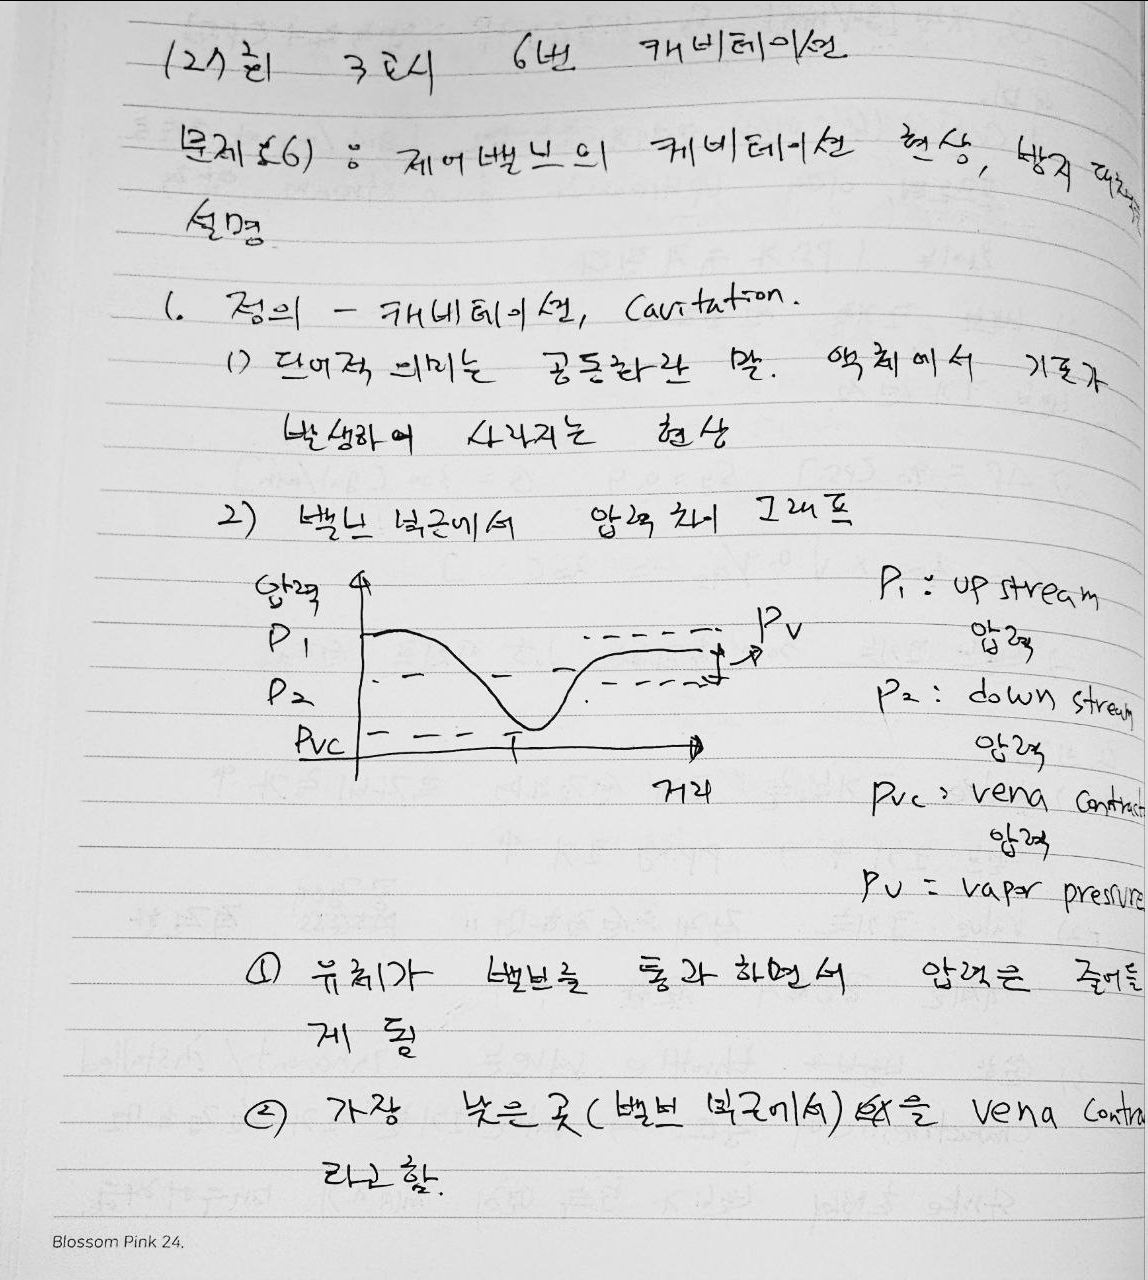 127회 3교시 6번 캐비테이션
문제 6) : 제어밸브의 캐비테이션 현상, 방지
설명
1. 정의 - 캐비테이션, Cavitation.
1) 단어적 의미는 공동화란 말. 액체에서 기포가
발생하여 사라지는 현상
2) 밸브 부근에서 압력 차이 그래프
압력
P1
P2
Pvc
Pv
거리
P1 : up stream
압력
P2 : down stream
압력
Pvc : vena contract
압력
Pv = vapor pressure
① 유체가 밸브를 통과하면서 압력은 줄어들
게 됨
② 가장 낮은 곳(밸브 부근에서)을 vena contra
라고 함.
Blossom Pink 24.